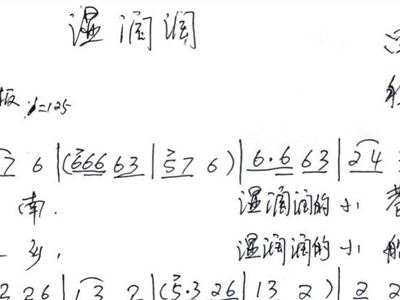 湿润润
板 ♩=125
7 6 | (666 63 | 57 6) | 6·6 63 | 24
南. 湿润润的小巷
乡, 湿润润的小船
2 26 | 13 2 | (5·3 26 | 13 2) | 2 2